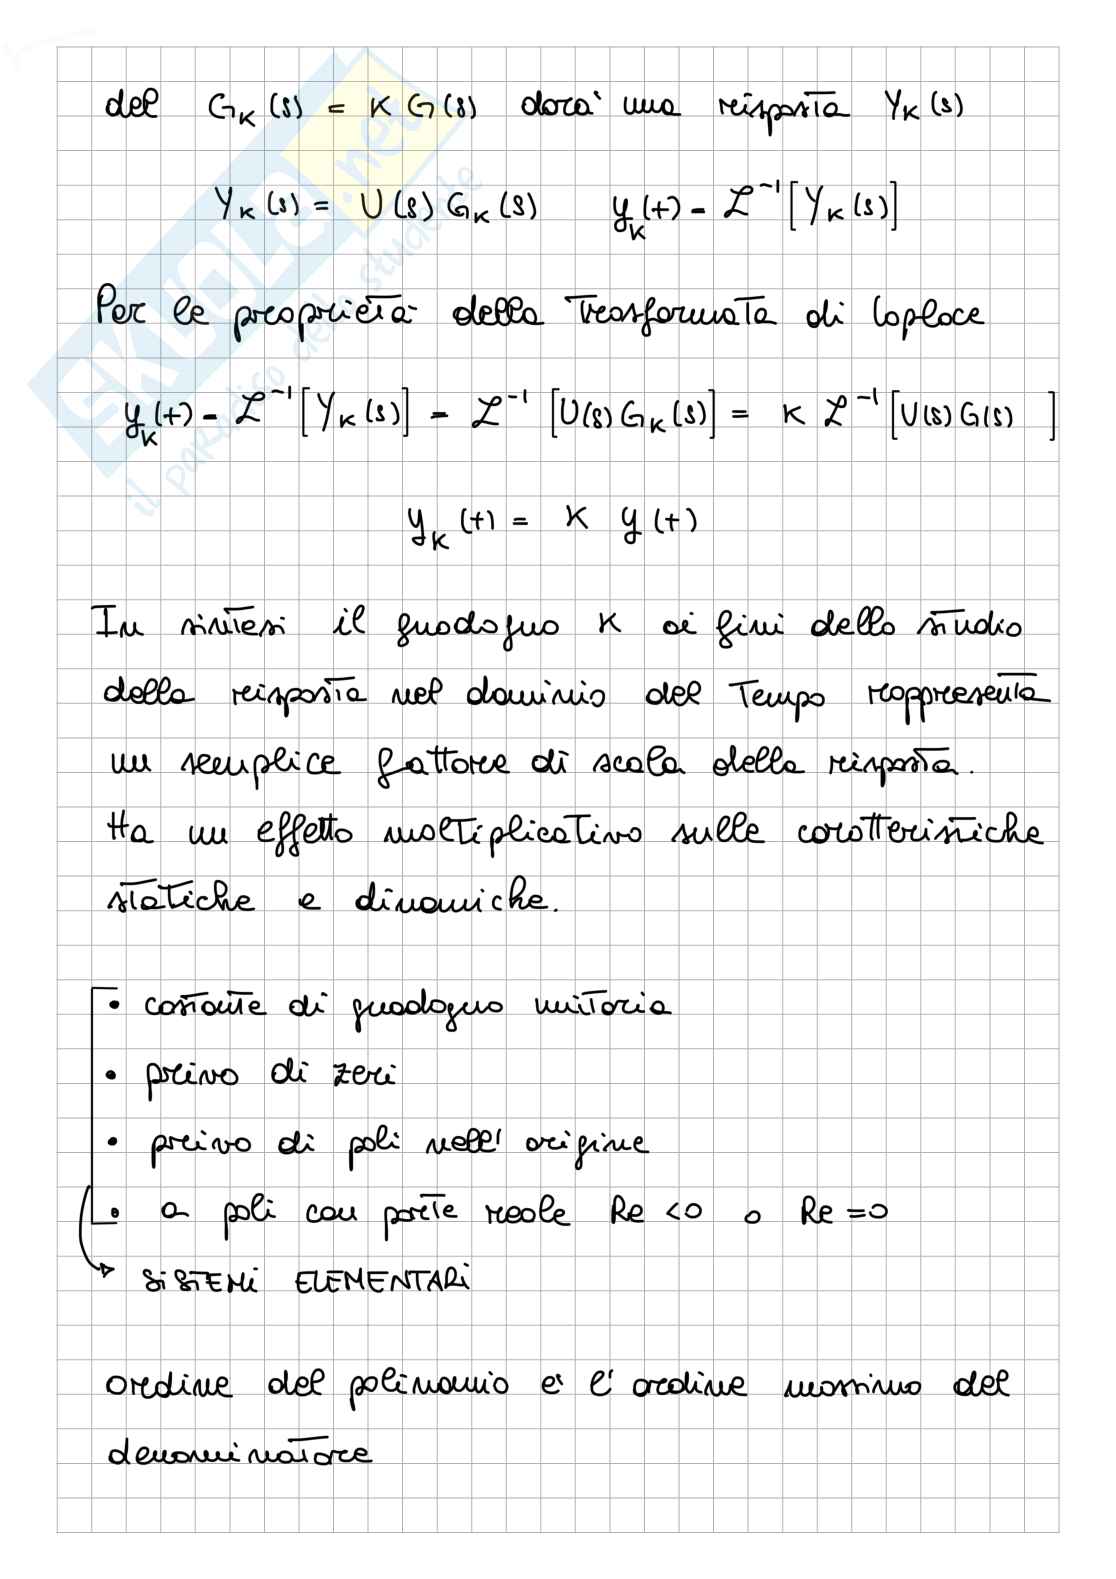 del G_K (s) = K G(s) darà una risposta Y_K (s)
Y_K (s) = U(s) G_K (s) y_K (t) = ℒ⁻¹ [Y_K (s)]
Per le proprietà della Trasformata di Laplace
y_K (t) = ℒ⁻¹ [Y_K (s)] = ℒ⁻¹ [U(s) G_K (s)] = K ℒ⁻¹ [U(s) G(s) ]
y_K (t) = K y (t)
In sintesi il guadagno K ai fini dello studio
della risposta nel dominio del Tempo rappresenta
un semplice fattore di scala della risposta.
Ha un effetto moltiplicativo sulle caratteristiche
statiche e dinamiche.
• costante di guadagno unitaria
• privo di zeri
• privo di poli nell' origine
• a poli con parte reale Re <0 o Re =0
SISTEMI ELEMENTARI
ordine del polinomio è l' ordine massimo del
denominatore
SKUOLA.net
il paradiso dello studente